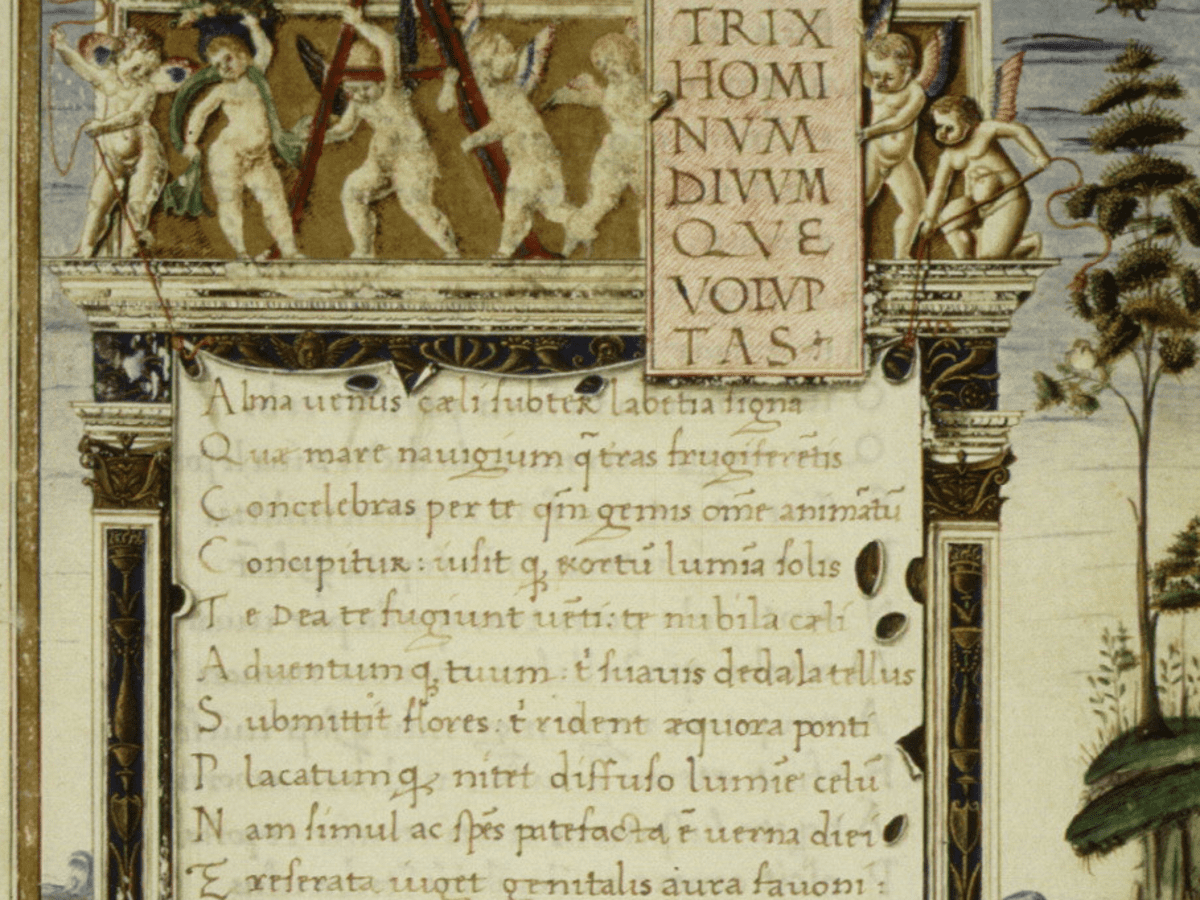 TRIX
HOMI
NVM
DIVVM
QVE
VOLVP
TAS
Alma uenus cæli subter labētia signa
Quæ mare nauigium q̄ tras frugiferētis
Concelebras per te qm̄ genus om̄e animātū
Concipitur: uisit q, exortū lumīa solis
Te Dea te fugiunt uēti: te nubila cæli
Aduentumq, tuum: t' suauis dedala tellus
Submittit flores: t' rident æquora ponti
Placatumq, nitet diffuso lumīe celū
Nam simul ac spēs patefacta ē uerna diei
Et reserata uiget genitalis aura fauoni: